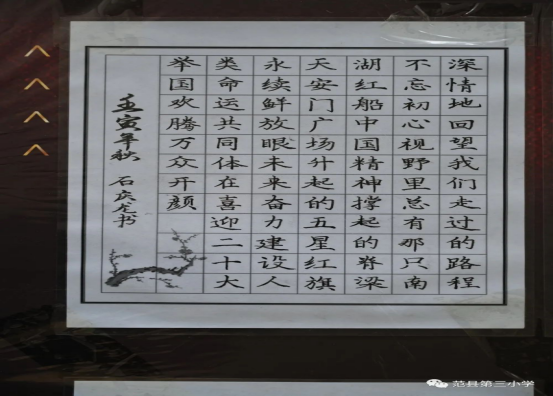 深情地回望我们走过的路程
不忘初心视野里总有那只南
湖红船中国精神撑起的脊梁
天安门广场升起的五星红旗
永续鲜放眼未来奋力建设人
类命运共同体在喜迎二十大
举国欢腾万众开颜
壬寅年秋 石庆书
范县第三小学